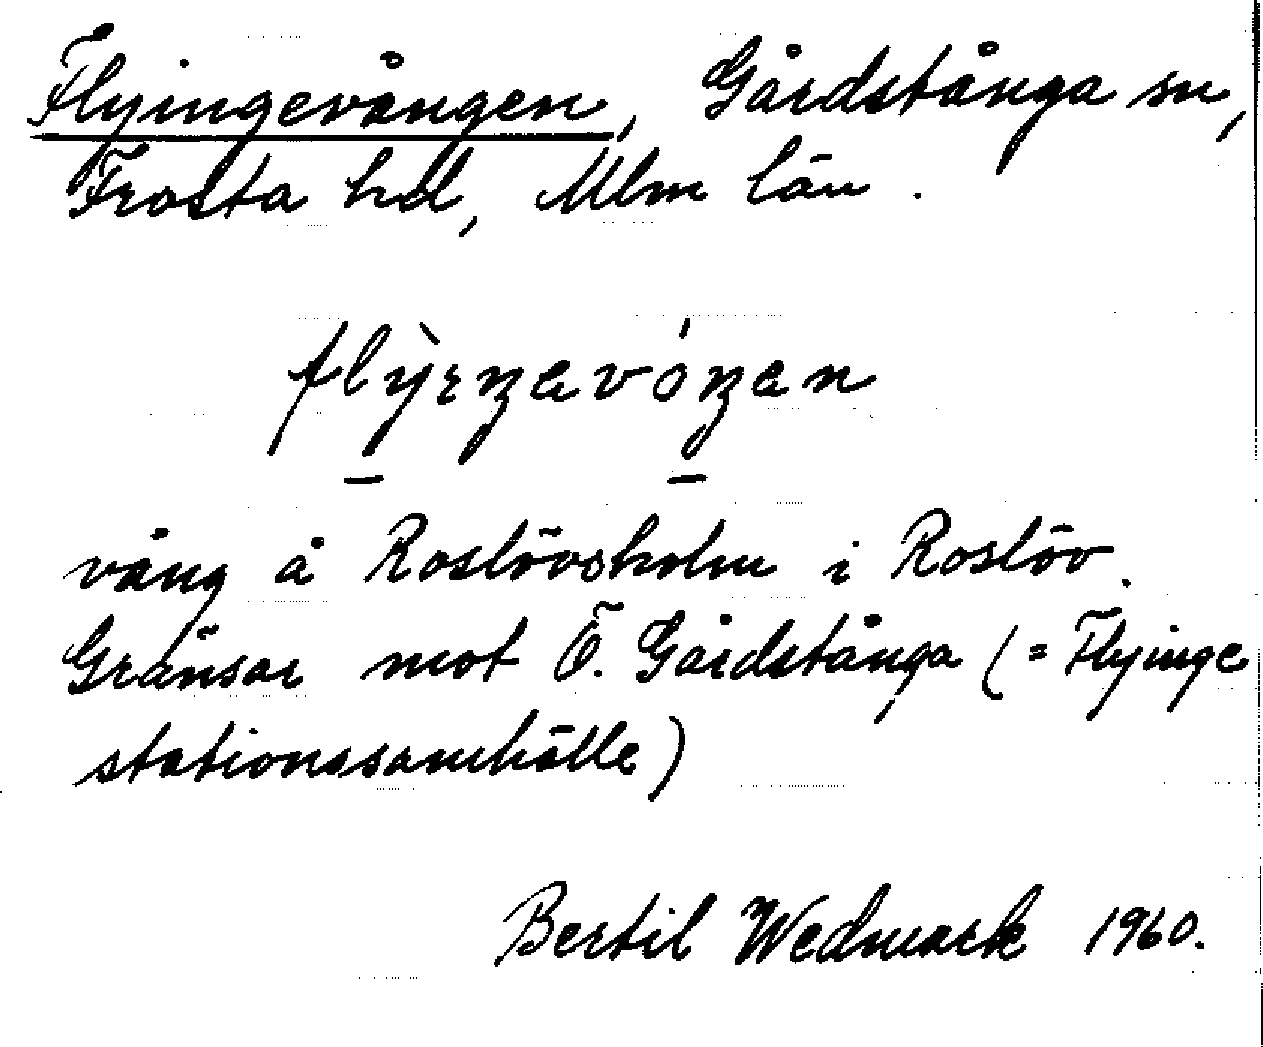 Flyingevången, Gårdstånga sn,
Frosta hd, Mlm län.
vång å Roslövsholm i Roslöv.
Gränsar mot Ö. Gårdstånga (= Flyinge
stationssamhälle)
Bertil Wedmark 1960.